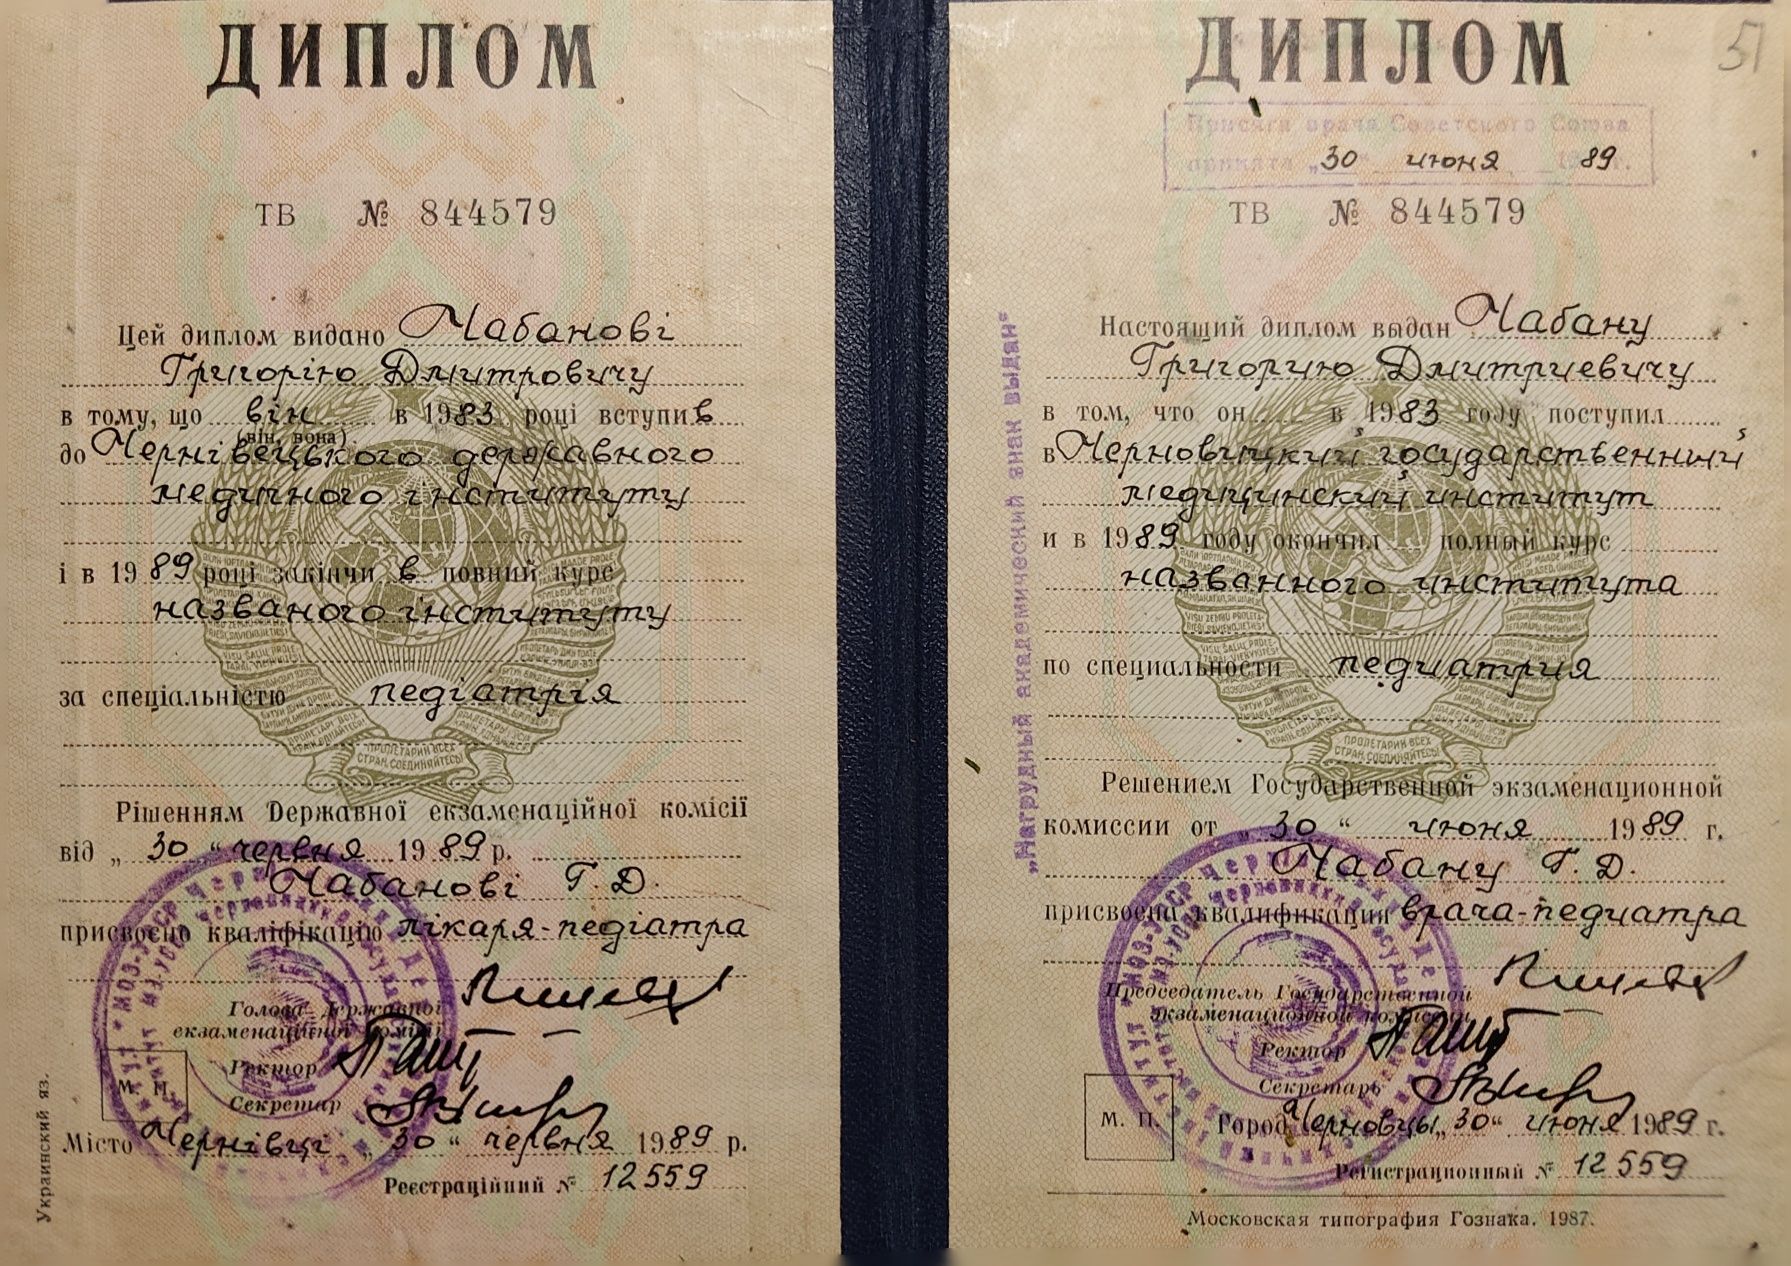 ДИПЛОМ
ТВ № 844579
Цей диплом видано Чабанові
Григорію Дмитровичу
в тому, що він в 1983 році вступив
(він, вона)
до Чернівецького державного
медичного інституту
і в 1989 році закінчив повний курс
названого інституту
за спеціальністю педіатрія
ПРОЛЕТАРИИ ВСЕХ
СТРАН, СОЕДИНЯЙТЕСЬ!
Рішенням Державної екзаменаційної комісії
від „30“ червня 1989 р.
Чабанові Г. Д.
присвоєно кваліфікацію лікаря-педіатра
Голова Державної
екзаменаційної комісії
Ректор
М. П.
Секретар
Місто Чернівці „30“ червня 1989 р.
Реєстраційний № 12559
Украинский яз.
ДИПЛОМ
51
Присяга врача Советского Союза
принята „30“ июня 1989 г.
ТВ № 844579
Настоящий диплом выдан Чабану
Григорию Дмитриевичу
в том, что он в 1983 году поступил
в Черновицкий государственный
медицинский институт
и в 1989 году окончил полный курс
названного института
по специальности педиатрия
ПРОЛЕТАРИИ ВСЕХ
СТРАН, СОЕДИНЯЙТЕСЬ!
Решением Государственной экзаменационной
комиссии от „30“ июня 1989 г.
Чабану Г. Д.
присвоена квалификация врача-педиатра
Председатель Государственной
экзаменационной комиссии
Ректор
Секретарь
М. П.
Город Черновцы „30“ июня 1989 г.
Регистрационный № 12559
Московская типография Гознака. 1987.
„Нагрудный академический знак выдан“